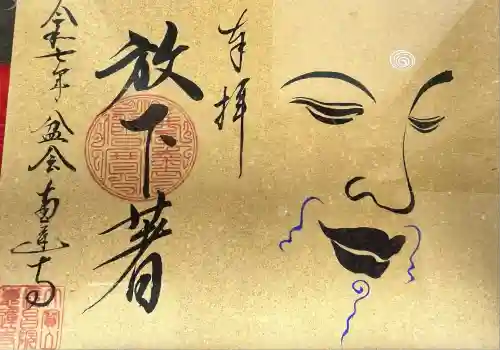 奉拝
放下著
令和七年 盆会 南蓮寺